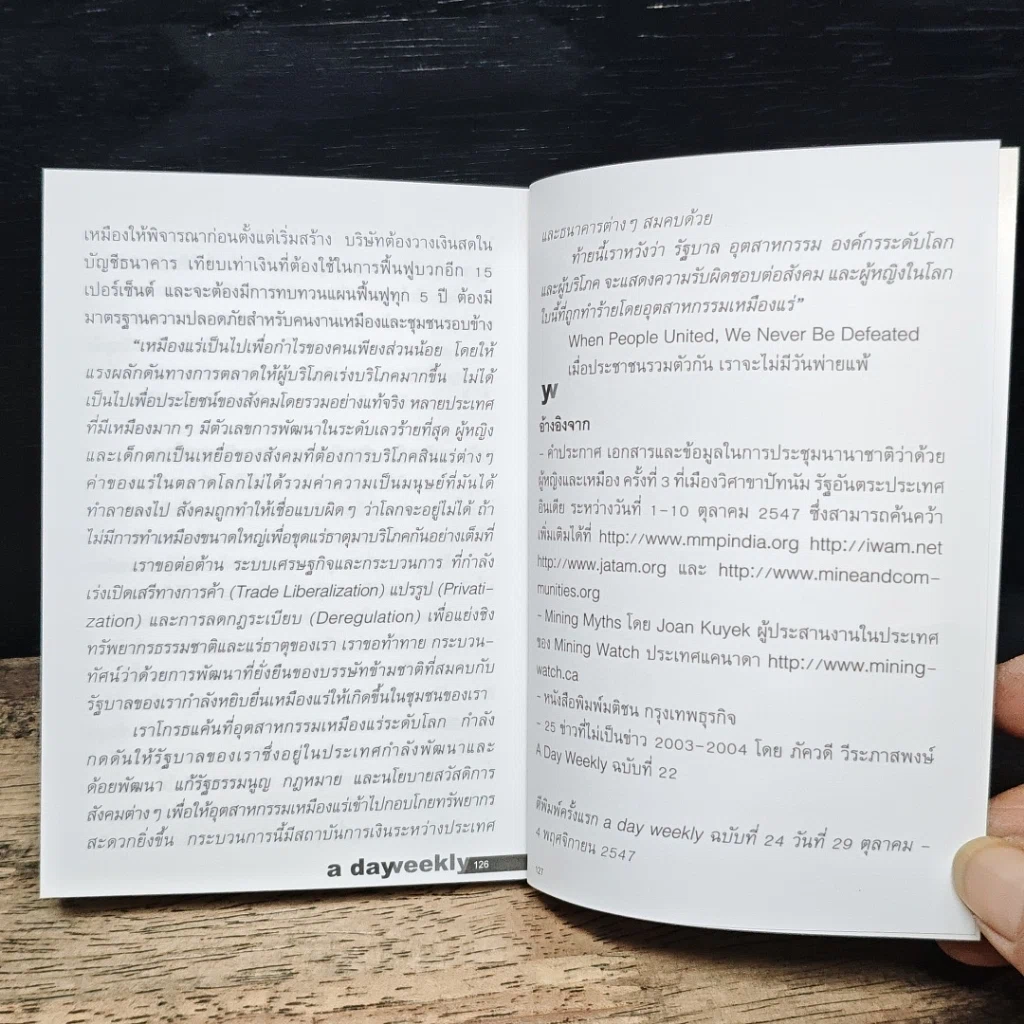 เหมืองให้พิจารณาก่อนตั้งแต่เริ่มสร้าง บริษัทต้องวางเงินสดใน
บัญชีธนาคาร เทียบเท่าเงินที่ต้องใช้ในการฟื้นฟูบวกอีก 15
เปอร์เซ็นต์ และจะต้องมีการทบทวนแผนฟื้นฟูทุก 5 ปี ต้องมี
มาตรฐานความปลอดภัยสำหรับคนงานเหมืองและชุมชนรอบข้าง
“เหมืองแร่เป็นไปเพื่อกำไรของคนเพียงส่วนน้อย โดยให้
แรงผลักดันทางการตลาดให้ผู้บริโภคเร่งบริโภคมากขึ้น ไม่ได้
เป็นไปเพื่อประโยชน์ของสังคมโดยรวมอย่างแท้จริง หลายประเทศ
ที่มีเหมืองมากๆ มีตัวเลขการพัฒนาในระดับเลวร้ายที่สุด ผู้หญิง
และเด็กตกเป็นเหยื่อของสังคมที่ต้องการบริโภคสินแร่ต่างๆ
ค่าของแร่ในตลาดโลกไม่ได้รวมค่าความเป็นมนุษย์ที่มันได้
ทำลายลงไป สังคมถูกทำให้เชื่อแบบผิดๆ ว่าโลกจะอยู่ไม่ได้ ถ้า
ไม่มีการทำเหมืองขนาดใหญ่เพื่อขุดแร่ธาตุมาบริโภคกันอย่างเต็มที่
เราขอต่อต้าน ระบบเศรษฐกิจและกระบวนการ ที่กำลัง
เร่งเปิดเสรีทางการค้า (Trade Liberalization) แปรรูป (Privati-
zation) และการลดกฎระเบียบ (Deregulation) เพื่อแย่งชิง
ทรัพยากรธรรมชาติและแร่ธาตุของเรา เราขอท้าทาย กระบวน-
ทัศน์ว่าด้วยการพัฒนาที่ยั่งยืนของบรรษัทข้ามชาติที่สมคบกับ
รัฐบาลของเรากำลังหยิบยื่นเหมืองแร่ให้เกิดขึ้นในชุมชนของเรา
เราโกรธแค้นที่อุตสาหกรรมเหมืองแร่ระดับโลก กำลัง
กดดันให้รัฐบาลของเราซึ่งอยู่ในประเทศกำลังพัฒนาและ
ด้อยพัฒนา แก้รัฐธรรมนูญ กฎหมาย และนโยบายสวัสดิการ
สังคมต่างๆ เพื่อให้อุตสาหกรรมเหมืองแร่เข้าไปกอบโกยทรัพยากร
สะดวกยิ่งขึ้น กระบวนการนี้มีสถาบันการเงินระหว่างประเทศ
a day weekly 126
และธนาคารต่างๆ สมคบด้วย
ท้ายนี้เราหวังว่า รัฐบาล อุตสาหกรรม องค์กรระดับโลก
และผู้บริโภค จะแสดงความรับผิดชอบต่อสังคม และผู้หญิงในโลก
ใบนี้ที่ถูกทำร้ายโดยอุตสาหกรรมเหมืองแร่”
When People United, We Never Be Defeated
เมื่อประชาชนรวมตัวกัน เราจะไม่มีวันพ่ายแพ้
อ้างอิงจาก
- คำประกาศ เอกสารและข้อมูลในการประชุมนานาชาติว่าด้วย
ผู้หญิงและเหมือง ครั้งที่ 3 ที่เมืองวิศาขาปัทนัม รัฐอันตระประเทศ
อินเดีย ระหว่างวันที่ 1-10 ตุลาคม 2547 ซึ่งสามารถค้นคว้า
เพิ่มเติมได้ที่ http://www.mmpindia.org http://iwam.net
http://www.jatam.org และ http://www.mineandcom-
munities.org
- Mining Myths โดย Joan Kuyek ผู้ประสานงานในประเทศ
ของ Mining Watch ประเทศแคนาดา http://www.mining-
watch.ca
- หนังสือพิมพ์มติชน กรุงเทพธุรกิจ
- 25 ข่าวที่ไม่เป็นข่าว 2003-2004 โดย ภัควดี วีระภาสพงษ์
A Day Weekly ฉบับที่ 22
ตีพิมพ์ครั้งแรก a day weekly ฉบับที่ 24 วันที่ 29 ตุลาคม -
4 พฤศจิกายน 2547
127